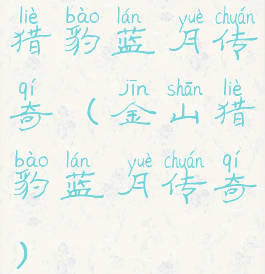 liè bào lán yuè chuán
猎豹蓝月传
qí jīn shān liè
奇(金山猎
bào lán yuè chuán qí
豹蓝月传奇
)